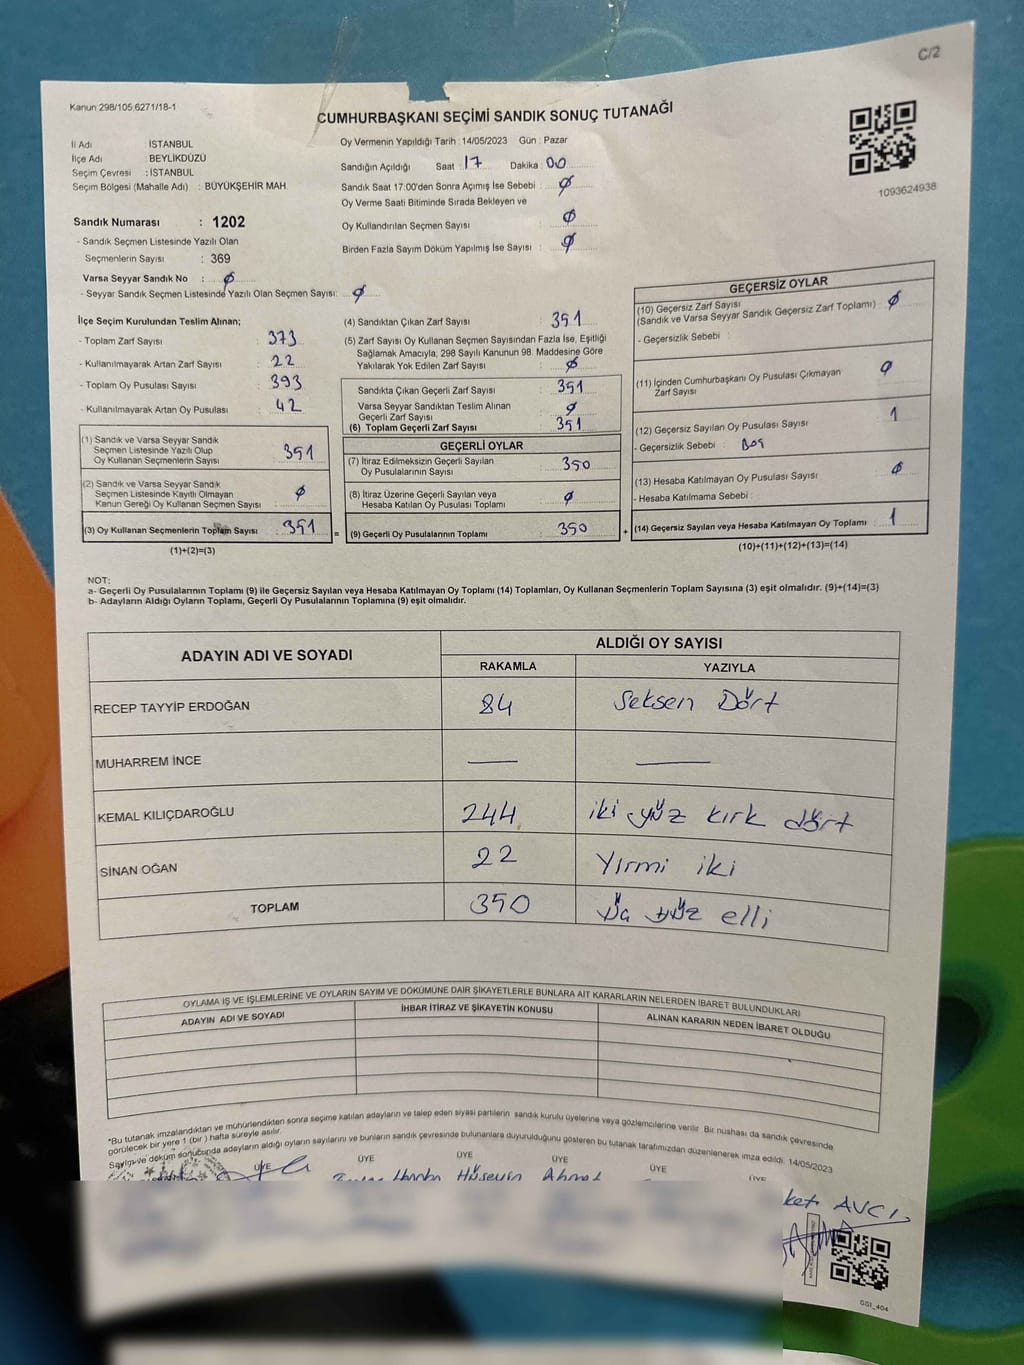 C/2
Kanun 298/105,6271/18-1
CUMHURBAŞKANI SEÇİMİ SANDIK SONUÇ TUTANAĞI
1093624938
İl Adı : İSTANBUL
İlçe Adı : BEYLİKDÜZÜ
Seçim Çevresi : İSTANBUL
Seçim Bölgesi (Mahalle Adı) : BÜYÜKŞEHİR MAH.
Oy Vermenin Yapıldığı Tarih : 14/05/2023 Gün : Pazar
Sandığın Açıldığı Saat 17 Dakika : 00
Sandık Saat 17:00'den Sonra Açımış İse Sebebi : Ø
Oy Verme Saati Bitiminde Sırada Bekleyen ve
Oy Kullandırılan Seçmen Sayısı : Ø
Birden Fazla Sayım Döküm Yapılmış İse Sayısı : Ø
Sandık Numarası : 1202
- Sandık Seçmen Listesinde Yazılı Olan
Seçmenlerin Sayısı : 369
Varsa Seyyar Sandık No : Ø
- Seyyar Sandık Seçmen Listesinde Yazılı Olan Seçmen Sayısı: Ø
İlçe Seçim Kurulundan Teslim Alınan;
- Toplam Zarf Sayısı : 373
- Kullanılmayarak Artan Zarf Sayısı : 22
- Toplam Oy Pusulası Sayısı : 393
- Kullanılmayarak Artan Oy Pusulası : 42
(1) Sandık ve Varsa Seyyar Sandık
Seçmen Listesinde Yazılı Olup
Oy Kullanan Seçmenlerin Sayısı : 351
(2) Sandık ve Varsa Seyyar Sandık
Seçmen Listesinde Kayıtlı Olmayan
Kanun Gereği Oy Kullanan Seçmen Sayısı : Ø
(3) Oy Kullanan Seçmenlerin Toplam Sayısı : 351 =
(1)+(2)=(3)
(4) Sandıktan Çıkan Zarf Sayısı : 351
(5) Zarf Sayısı Oy Kullanan Seçmen Sayısından Fazla İse, Eşitliği
Sağlamak Amacıyla, 298 Sayılı Kanunun 98. Maddesine Göre
Yakılarak Yok Edilen Zarf Sayısı : Ø
Sandıkta Çıkan Geçerli Zarf Sayısı : 351
Varsa Seyyar Sandıktan Teslim Alınan
Geçerli Zarf Sayısı : Ø
(6) Toplam Geçerli Zarf Sayısı : 351
GEÇERLİ OYLAR
(7) İtiraz Edilmeksizin Geçerli Sayılan
Oy Pusulalarının Sayısı : 350
(8) İtiraz Üzerine Geçerli Sayılan veya
Hesaba Katılan Oy Pusulası Toplamı : Ø
(9) Geçerli Oy Pusulalarının Toplamı : 350 +
GEÇERSİZ OYLAR
(10) Geçersiz Zarf Sayısı
(Sandık ve Varsa Seyyar Sandık Geçersiz Zarf Toplamı) : Ø
- Geçersizlik Sebebi :
(11) İçinden Cumhurbaşkanı Oy Pusulası Çıkmayan
Zarf Sayısı : Ø
(12) Geçersiz Sayılan Oy Pusulası Sayısı : 1
- Geçersizlik Sebebi : Boş
(13) Hesaba Katılmayan Oy Pusulası Sayısı : Ø
- Hesaba Katılmama Sebebi :
(14) Geçersiz Sayılan veya Hesaba Katılmayan Oy Toplamı : 1
(10)+(11)+(12)+(13)=(14)
NOT:
a- Geçerli Oy Pusulalarının Toplamı (9) ile Geçersiz Sayılan veya Hesaba Katılmayan Oy Toplamı (14) Toplamları, Oy Kullanan Seçmenlerin Toplam Sayısına (3) eşit olmalıdır. (9)+(14)=(3)
b- Adayların Aldığı Oyların Toplamı, Geçerli Oy Pusulalarının Toplamına (9) eşit olmalıdır.
ADAYIN ADI VE SOYADI ALDIĞI OY SAYISI
RAKAMLA YAZIYLA
RECEP TAYYİP ERDOĞAN 84 Seksen Dört
MUHARREM İNCE — —
KEMAL KILIÇDAROĞLU 244 iki yüz kırk dört
SİNAN OĞAN 22 Yirmi iki
TOPLAM 350 Üç yüz elli
OYLAMA İŞ VE İŞLEMLERİNE VE OYLARIN SAYIM VE DÖKÜMÜNE DAİR ŞİKAYETLERLE BUNLARA AİT KARARLARIN NELERDEN İBARET BULUNDUKLARI
ADAYIN ADI VE SOYADI İHBAR İTİRAZ VE ŞİKAYETİN KONUSU ALINAN KARARIN NEDEN İBARET OLDUĞU
*Bu tutanak imzalandıktan ve mühürlendikten sonra seçime katılan adayların ve talep eden siyasi partilerin sandık kurulu üyelerine veya gözlemcilerine verilir. Bir nüshası da sandık çevresinde
görülecek bir yere 1 (bir) hafta süreyle asılır.
Sayım ve döküm sonucunda adayların aldığı oyların sayılarını ve bunların sandık çevresinde bulunanlara duyurulduğunu gösteren bu tutanak tarafımızdan düzenlenerek imza edildi. 14/05/2023
ÜYE ÜYE ÜYE ÜYE ÜYE ÜYE
Hüseyin Ahmet
AVCI